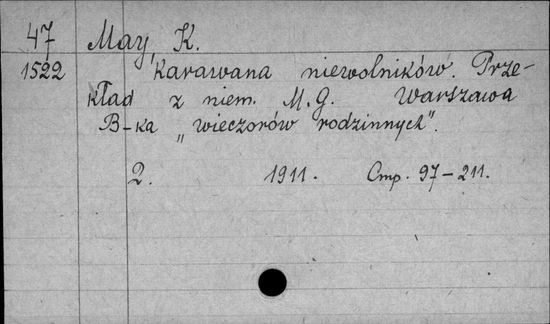 47 May, K.
1522 Karawana niewolników. Prze-
kład z niem. M. G. Warszawa
B-ka „wieczorów rodzinnych".
2. 1911. Стр. 97-211.